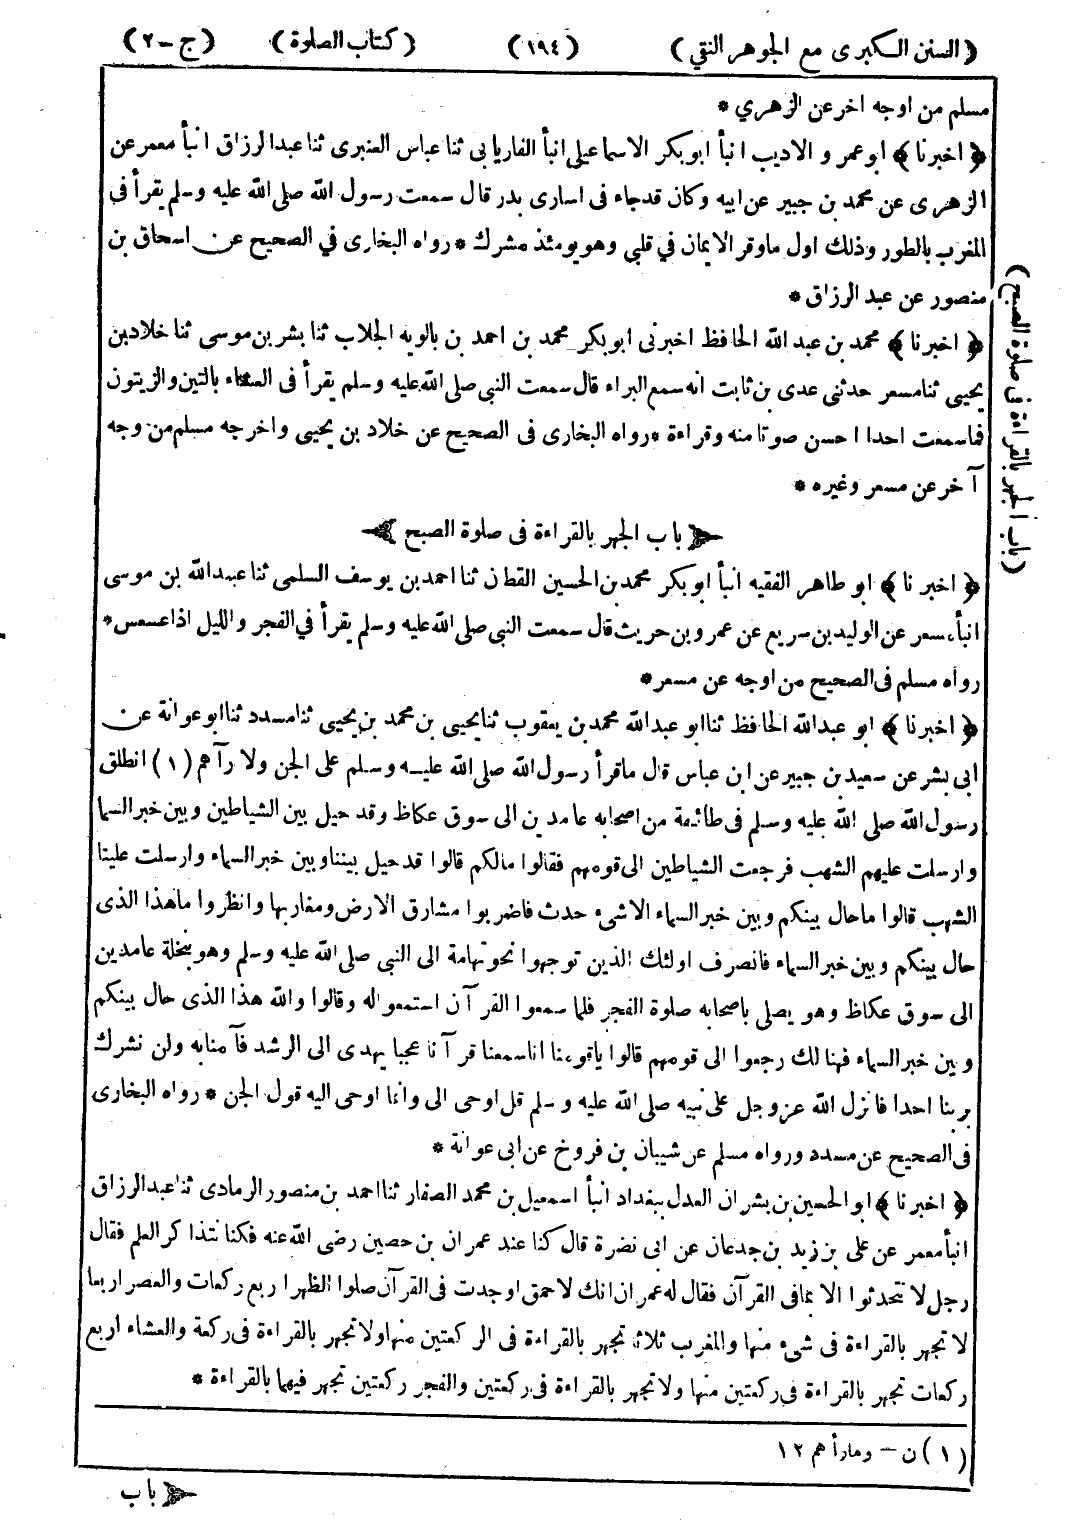 (السنن الكبرى مع الجوهر النقي) (١٩٤) (كتاب الصلوة) (ج-٢)
مسلم من اوجه اخر عن الزهري *
﴿ اخبرنا ﴾ ابو عمر و الاديب انبأ ابو بكر الاسماعيلي انبأ الفاريابى ثنا عباس العنبرى ثنا عبدالرزاق انبأ معمر عن
الزهرى عن محمد بن جبير عن ابيه وكان قد جاء فى اسارى بدر قال سمعت رسول الله صلى الله عليه وسلم يقرأ فى
المغرب بالطور وذلك اول ماوقر الايمان في قلبي وهو يومئذ مشرك * رواه البخارى في الصحيح عن اسحاق بن
منصور عن عبد الرزاق *
﴿ اخبرنا ﴾ محمد بن عبد الله الحافظ اخبرنى ابو بكر محمد بن احمد بن بالويه الجلاب ثنا بشر بن موسى ثنا خلاد بن
يحيى ثنا مسعر حدثنى عدى بن ثابت انه سمع البراء قال سمعت النبي صلى الله عليه وسلم يقرأ فى العشاء بالتين والزيتون
فما سمعت احدا احسن صوتا منه وقراءة * رواه البخارى فى الصحيح عن خلاد بن يحيى واخرجه مسلم من وجه
آخر عن مسعر وغيره *
باب الجهر بالقراءة فى صلوة الصبح
﴿ اخبرنا ﴾ ابو طاهر الفقيه انبأ ابو بكر محمد بن الحسين القطان ثنا احمد بن يوسف السلمى ثنا عبيدالله بن موسى
انبأ مسعر عن الوليد بن سريع عن عمرو بن حريث قال سمعت النبى صلى الله عليه وسلم يقرأ في الفجر والليل اذا عسعس *
رواه مسلم فى الصحيح من اوجه عن مسعر *
﴿ اخبرنا ﴾ ابو عبدالله الحافظ ثنا ابو عبدالله محمد بن يعقوب ثنا يحيى بن محمد بن يحيى ثنا مسدد ثنا ابو عوانة عن
ابى بشر عن سعيد بن جبير عن ابن عباس قال ماقرأ رسول الله صلى الله عليه وسلم على الجن ولا رآهم (١) انطلق
رسول الله صلى الله عليه وسلم فى طائفة من اصحابه عامدين الى سوق عكاظ وقد حيل بين الشياطين وبين خبر السما
وارسلت عليهم الشهب فرجعت الشياطين الى قومهم فقالوا مالكم قالوا قد حيل بيننا وبين خبر السماء وارسلت علينا
الشهب قالوا ماحال بينكم وبين خبر السماء الا شىء حدث فاضربوا مشارق الارض ومغاربها وانظروا ماهذا الذى
حال بينكم وبين خبر السماء فانصرف اولئك الذين توجهوا نحو تهامة الى النبى صلى الله عليه وسلم وهو بنخلة عامدين
الى سوق عكاظ وهو يصلى باصحابه صلوة الفجر فلما سمعوا القرآن استمعوا له وقالوا والله هذا الذى حال بينكم
وبين خبر السماء فهنالك رجعوا الى قومهم قالوا ياقومنا اناسمعنا قرآنا عجبا يهدى الى الرشد فآمنا به ولن نشرك
بربنا احدا فانزل الله عز وجل على نبيه صلى الله عليه وسلم قل اوحى الى وانما اوحى اليه قول الجن * رواه البخارى
فى الصحيح عن مسدد ورواه مسلم عن شيبان بن فروخ عن ابى عوانة *
﴿ اخبرنا ﴾ ابو الحسين بن بشران العدل ببغداد انبأ اسمعيل بن محمد الصفار ثنا احمد بن منصور الرمادى ثنا عبدالرزاق
انبأ معمر عن على بن زيد بن جدعان عن ابى نضرة قال كنا عند عمران بن حصين رضى الله عنه فكنا نتذاكر العلم فقال
رجل لا تتحدثوا الا بما فى القرآن فقال له عمران انك لاحمق اوجدت فى القرآن صلوا الظهر اربع ركعات والعصر اربعا
لا تجهر بالقراءة فى شىء منها والمغرب ثلاثا تجهر بالقراءة فى الركعتين منها ولا تجهر بالقراءة فى ركعة والعشاء اربع
ركعات تجهر بالقراءة في ركعتين منها ولا تجهر بالقراءة فى ركعتين والفجر ركعتين تجهر فيهما بالقراءة *
(١) ن - ومارأ هم ١٢
باب
(باب الجهر بالقراءة فى صلوة الصبح)